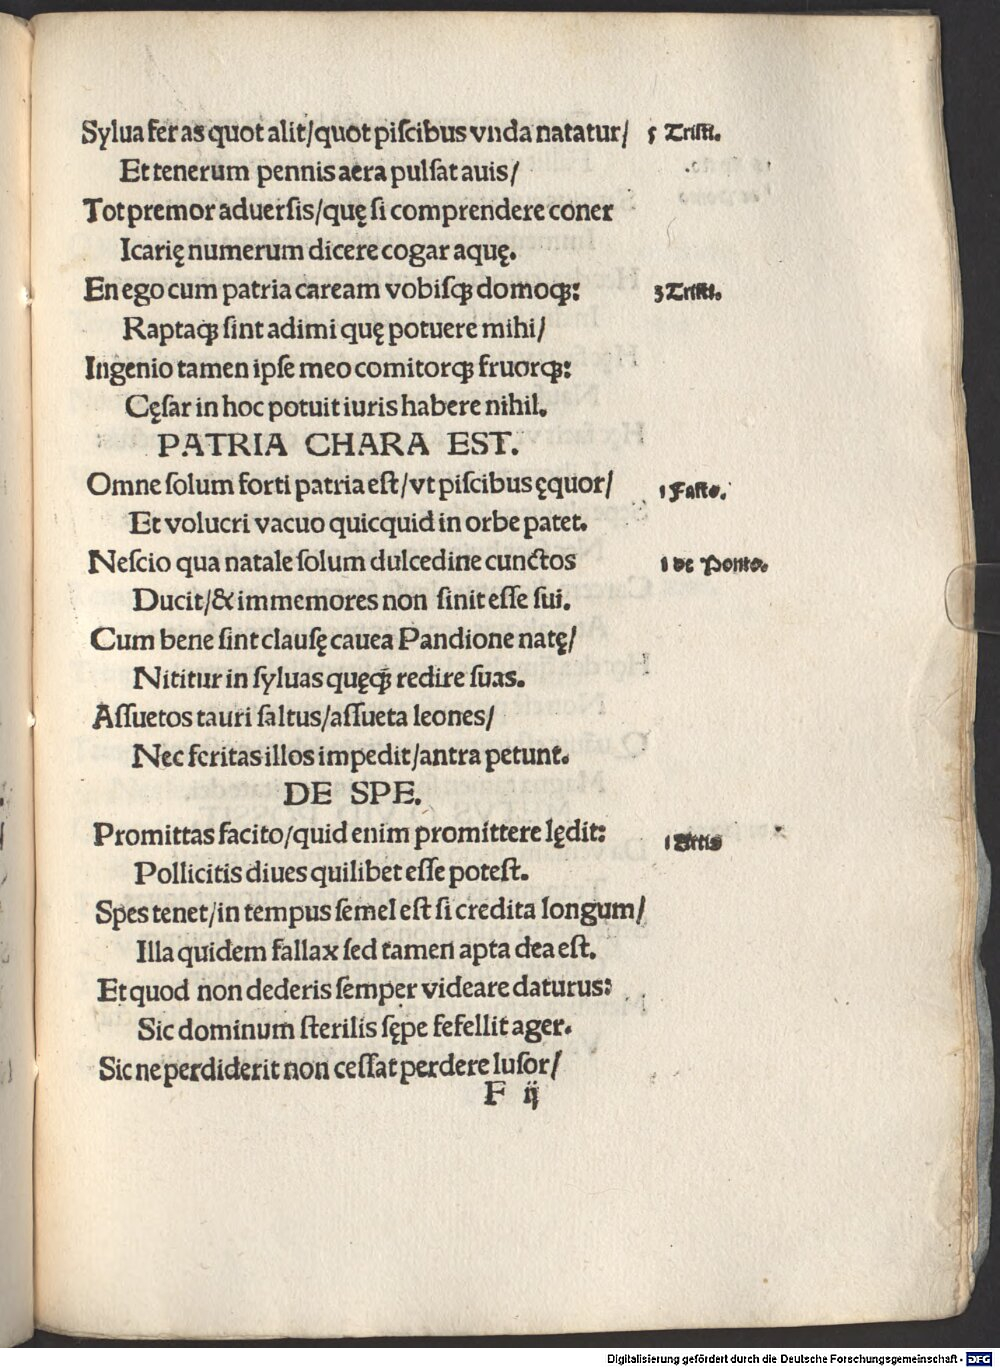 Sylua feras quot alit/quot piſcibus vnda natatur/ 5 Triſti.
Et tenerum pennis aera pulſat auis/
Tot premor aduerſis/quę ſi comprendere coner
Icarię numerum dicere cogar aquę.
En ego cum patria caream vobiſqꝫ domoqꝫ: 3 Triſti.
Raptaqꝫ ſint adimi quę potuere mihi/
Ingenio tamen ipſe meo comitorqꝫ fruorqꝫ:
Cęſar in hoc potuit iuris habere nihil.
PATRIA CHARA EST.
Omne ſolum forti patria eſt/vt piſcibus ęquor/ 1 Faſto.
Et volucri vacuo quicquid in orbe patet.
Neſcio qua natale ſolum dulcedine cunctos 1 de Ponto.
Ducit/& immemores non ſinit eſſe ſui.
Cum bene ſint clauſę cauea Pandione natę/
Nititur in ſyluas quęqꝫ redire ſuas.
Aſſuetos tauri ſaltus/aſſueta leones/
Nec feritas illos impedit/antra petunt.
DE SPE.
Promittas facito/quid enim promittere lędit: 1 Artis
Pollicitis diues quilibet eſſe poteſt.
Spes tenet/in tempus ſemel eſt ſi credita longum/
Illa quidem fallax ſed tamen apta dea eſt.
Et quod non dederis ſemper videare daturus:
Sic dominum ſterilis ſępe fefellit ager.
Sic ne perdiderit non ceſſat perdere luſor/
F ij
Digitalisierung gefördert durch die Deutsche Forschungsgemeinschaft - DFG